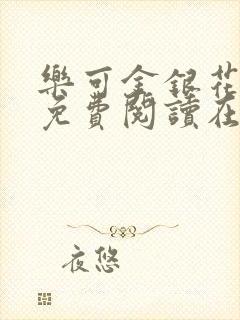 樂可金銀花
免費閱讀在
夜悠